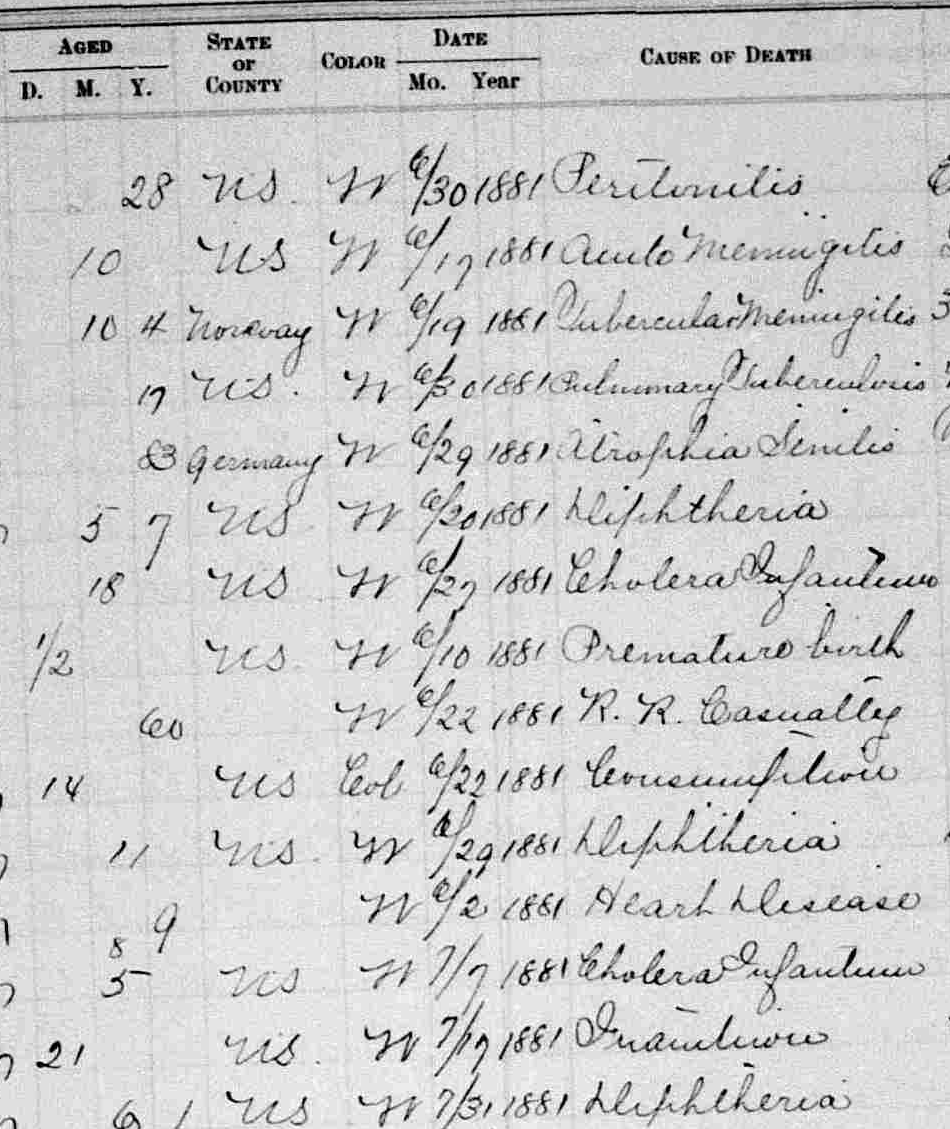 AGED STATE OR COUNTY COLOR DATE CAUSE OF DEATH
D. M. Y. Mo. Year
28 US. W 6/30 1881 Peritonitis
10 US W 6/17 1881 Acute Meningitis
10 4 Norway W 6/19 1881 Tubercular Meningitis
17 US. W 6/30 1881 Pulmonary Tuberculosis
83 Germany W 6/29 1881 Atrophia Senilis
5 7 US W 6/20 1881 Diphtheria
18 US W 6/27 1881 Cholera Infantum
1/2 US W 6/10 1881 Premature birth
60 W 6/22 1881 R. R. Casualty
14 US Col 6/22 1881 Consumption
11 US W 6/29 1881 Diphtheria
8 9 W 6/2 1881 Heart Disease
5 US W 7/7 1881 Cholera Infantum
21 US. W 7/17 1881 Inanition
6 1 US W 7/31 1881 Diphtheria